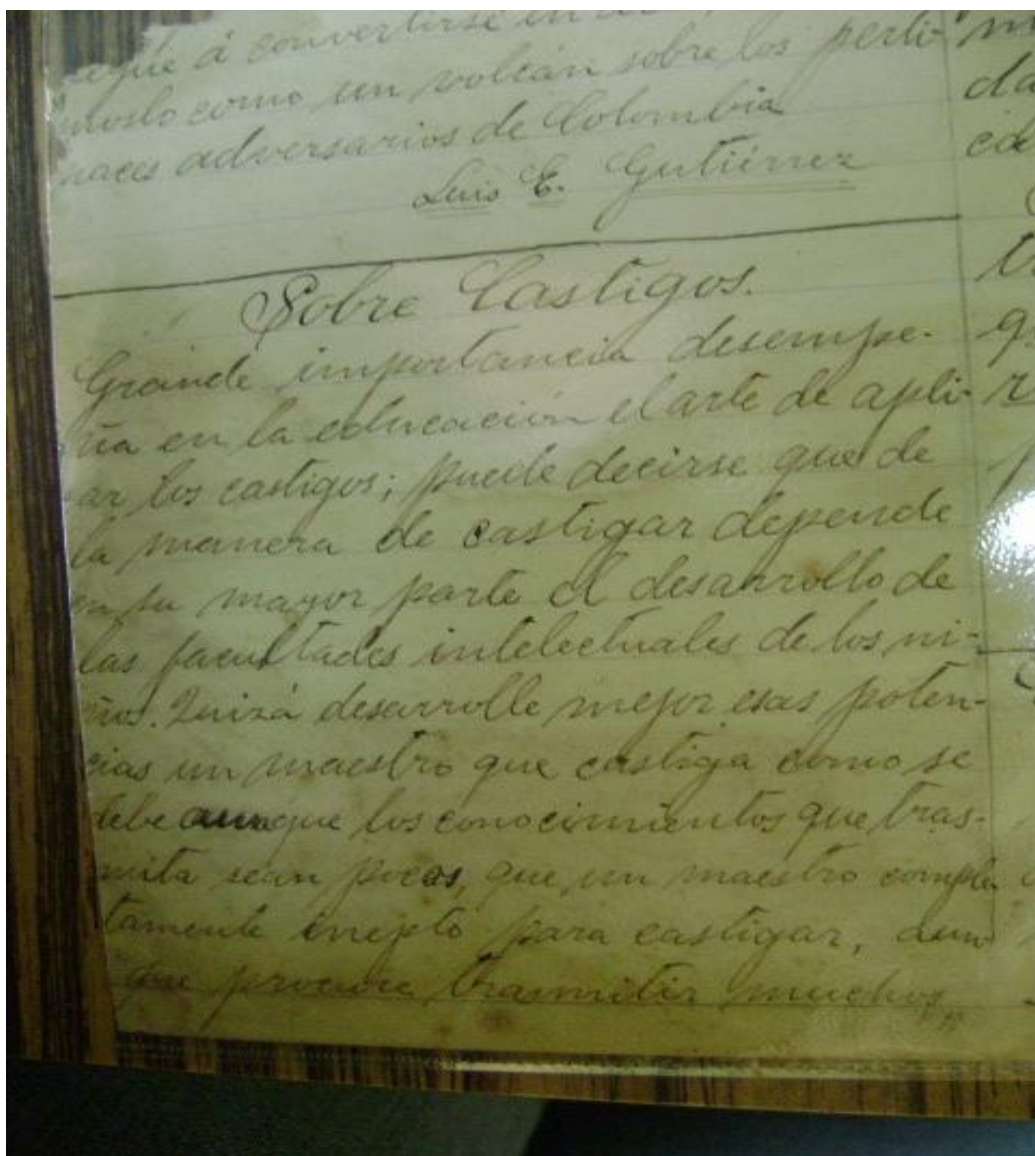 á convertirse en
como un volcán sobre los perti-
naces adversarios de Colombia
Luis E. Gutiérrez
Sobre Castigos.
Grande importancia desempe-
ña en la educación el arte de apli-
ar los castigos; puede decirse que de
la manera de castigar depende
en su mayor parte el desarrollo de
las facultades intelectuales de los ni-
ños. Quizá desarrolle mejor esas poten-
cias un maestro que castiga como se
debe aunque los conocimientos que tras-
mita sean pocos, que un maestro comple-
tamente inepto para castigar, aun
que procure trasmitir muchos